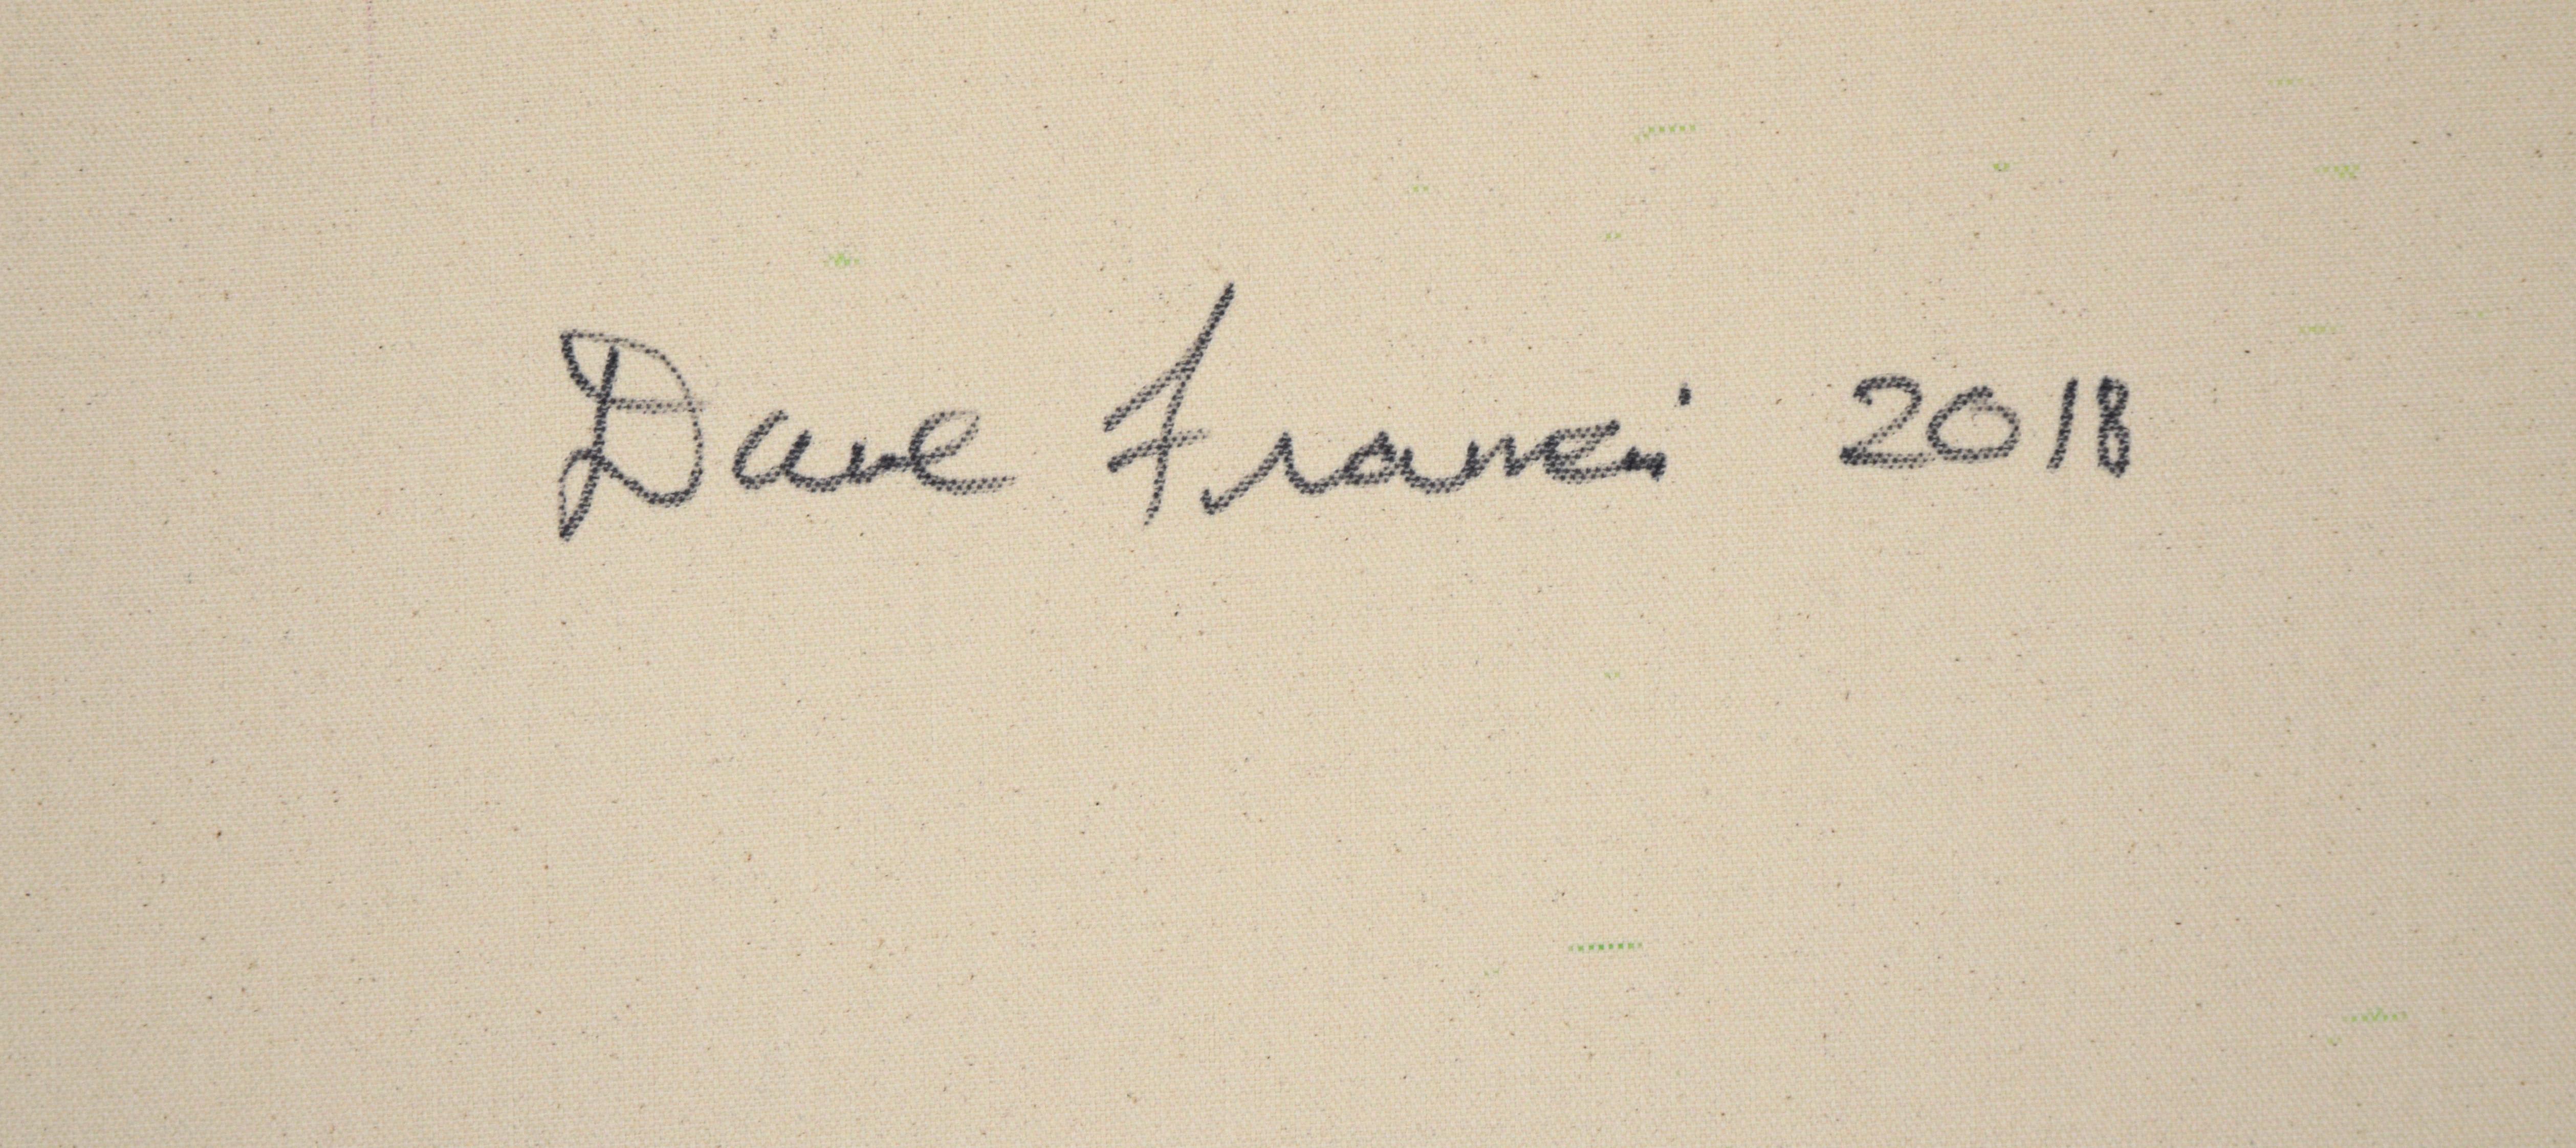 Dave Francis 2018